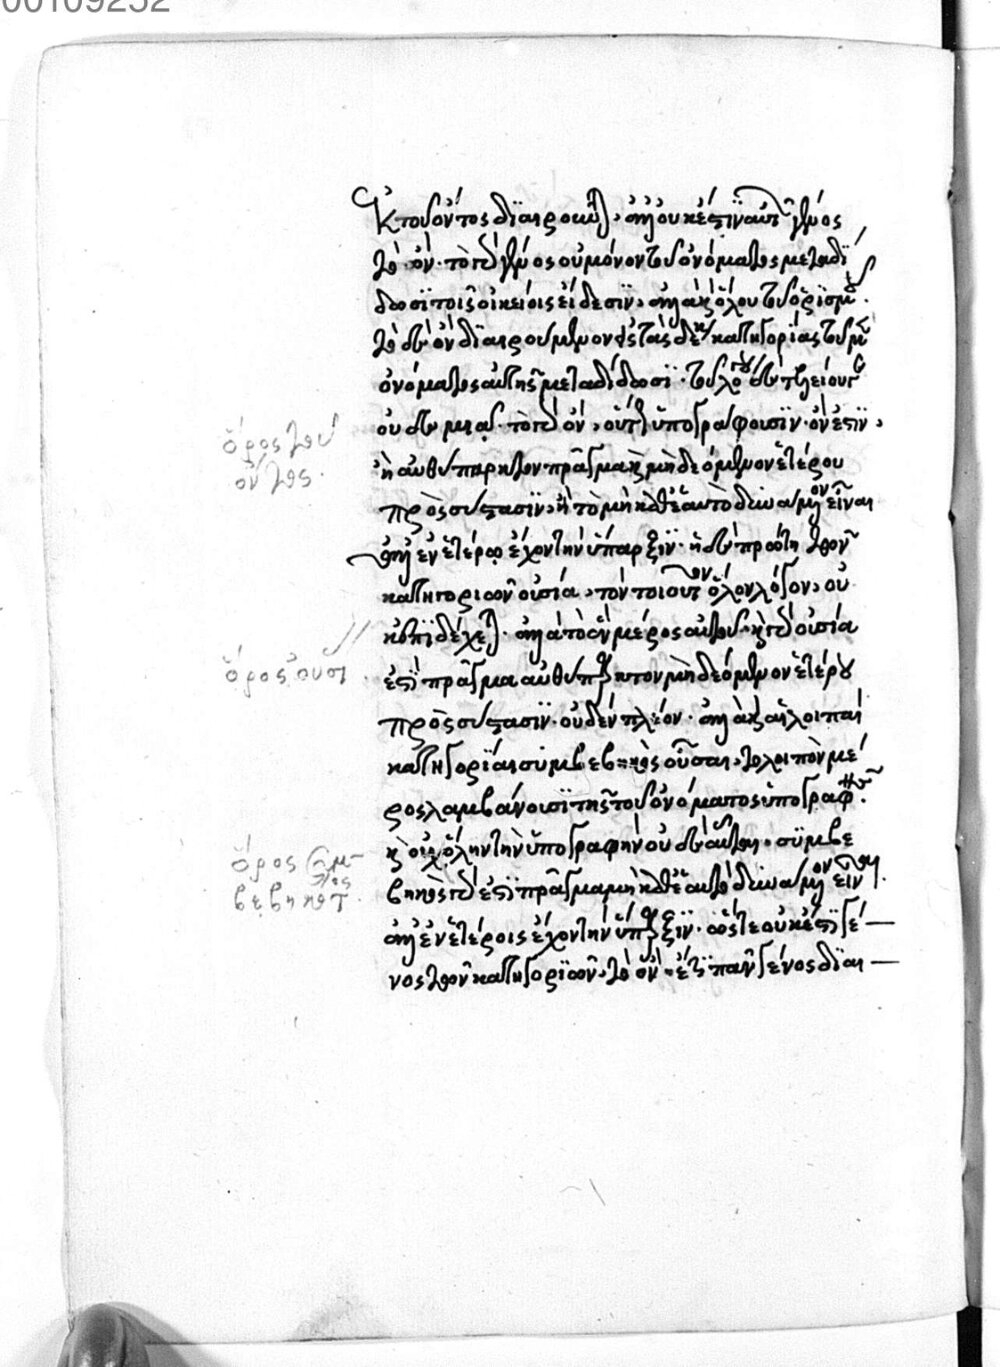 00109252
Ἐκ τοῦ ὄντος διαιροῦνται, ἀλλ' οὐκ ἔστιν αὐτῶν γένος
τὸ ὄν· τὸ γὰρ γένος οὐ μόνον τοῦ ὀνόματος μεταδί
δωσι τοῖς οἰκείοις εἴδεσιν, ἀλλὰ καὶ ὅλου τοῦ ὁρισμοῦ.
τὸ δὲ ὂν διαιρούμενον εἰς τὰς δέκα κατηγορίας τοῦ μὲν
ὀνόματος αὐταῖς μεταδίδωσι· τοῦ λόγου δὲ
οὐδαμῶς· τὸ γὰρ ὄν, οὕτως ὑπογράφουσιν· ὄν ἐστιν,
ἢ αὐθύπαρκτον πρᾶγμα καὶ μὴ δεόμενον ἑτέρου
πρὸς σύστασιν, ἢ τὸ μὴ καθ' ἑαυτὸ δυνάμενον εἶναι
ἀλλ' ἐν ἑτέρῳ ἔχον τὴν ὕπαρξιν· ἡ δὲ πρώτη τῶν
κατηγοριῶν οὐσία, τὸν τοιοῦτον ὅλον λόγον, οὐ
κ ἐπιδέχεται· ἀλλὰ τὸ ἓν μέρος αὐτοῦ· καὶ γὰρ οὐσία
ἐστὶ πρᾶγμα αὐθύπαρκτον μὴ δεόμενον ἑτέρου
πρὸς σύστασιν· οὐδὲν πλέον· ἀλλὰ καὶ αἱ λοιπαὶ
κατηγορίαι συμβεβηκὸς οὖσαι, τὸ λοιπὸν μέ
ρος λαμβάνουσι τῆς τοῦ ὀνόματος ὑπογραφῆς.
καὶ οὐχ ὅλην τὴν ὑπογραφὴν οὐδὲ αὗται· συμβε
βηκὸς γάρ ἐστι πρᾶγμα μὴ καθ' ἑαυτὸ δυνάμενον εἶναι.
ἀλλ' ἐν ἑτέροις ἔχον τὴν ὕπαρξιν· ὥστε οὐκ ἔστι γέ
νος τῶν κατηγοριῶν, τὸ ὄν· ἔτι πᾶν γένος διαι
ὅρος τοῦ
ὄντος.
ὅρος οὐσί
ὅρος συμ
βεβηκότος.